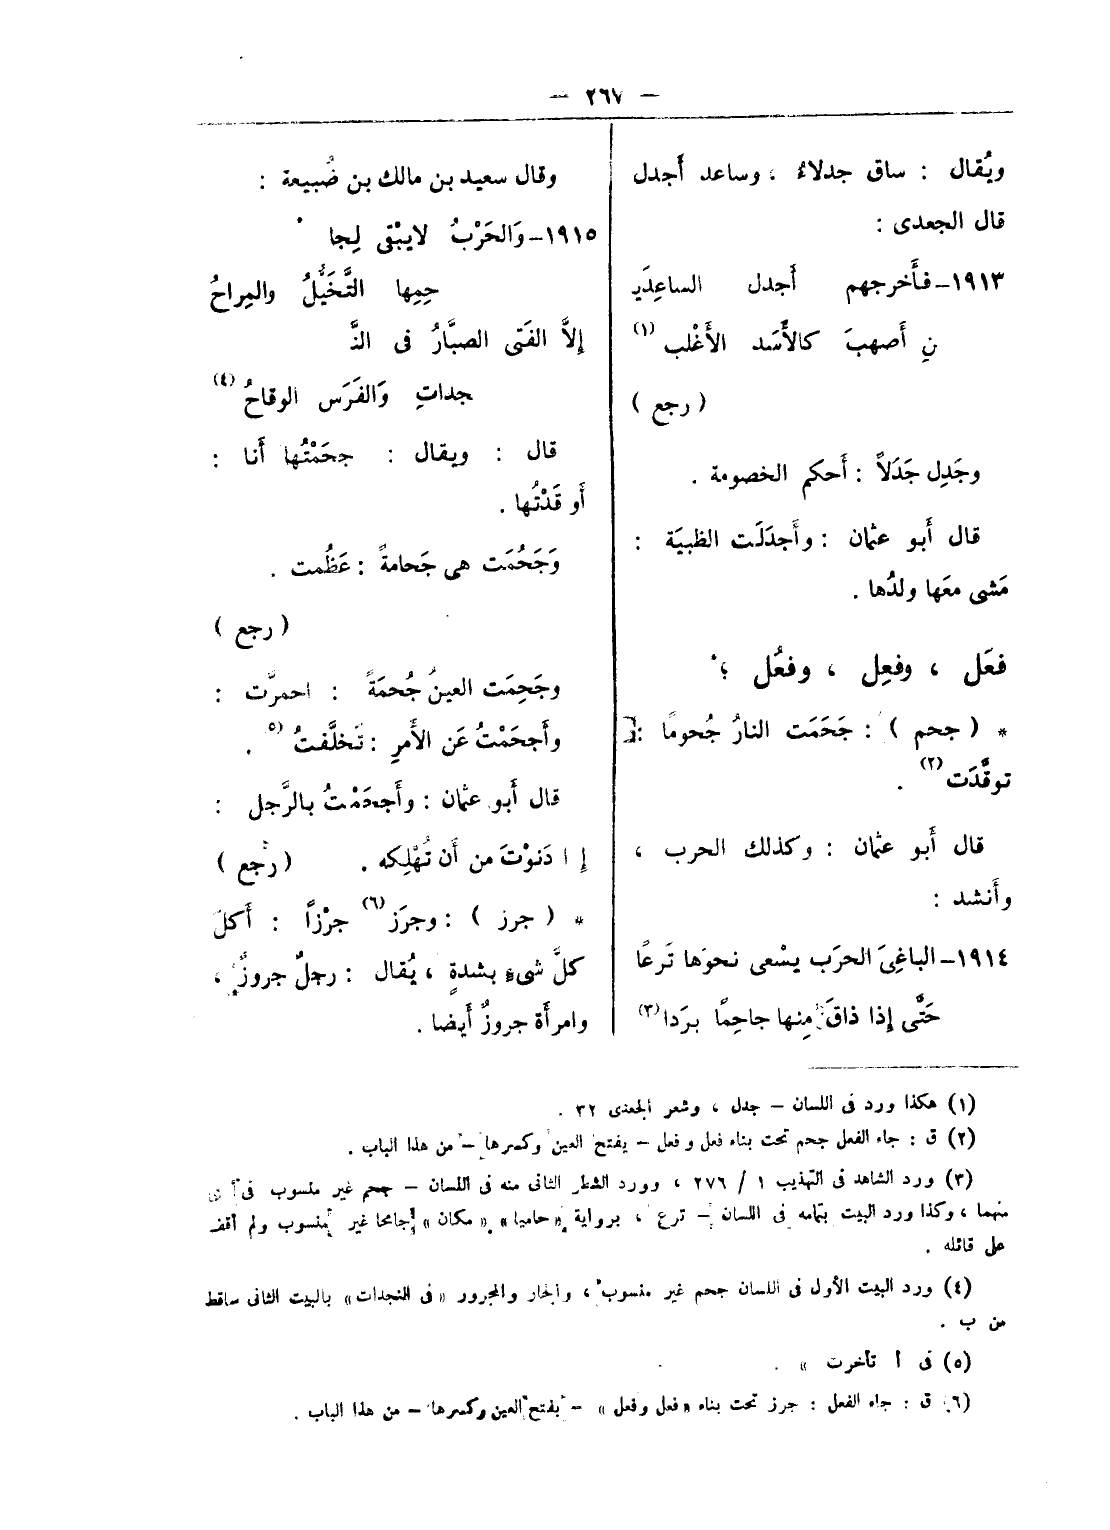 — ٢٦٧ —
ويُقال : ساق جدلاءُ ، وساعد أَجدل
قال الجعدى :
١٩١٣ـ فأَخرجهم أَجدل الساعِدَيـ
نِ أَصهبَ كالأَسَد الأَغْلب (١)
( رجع )
وجَدِل جَدَلاً : أَحكم الخصومة .
قال أَبو عثمان : وأَجدَلَت الظبيَة :
مَشى معَها ولدُها .
فعَل ، وفعِل ، وفعُل ؛
* ( جحم ) : جَحَمَت النارُ جُحومًا :
توقَّدَت (٢) .
قال أَبو عثمان : وكذلك الحرب ،
وأَنشد :
١٩١٤ـ الباغِىَ الحرَب يسْعى نحوَها تَرعًا
حَتَّى إِذا ذاقَ مِنها جاحِمًا برَدا (٣)
وقال سعيد بن مالك بن ضُبيعة :
١٩١٥ـ وَالحَرْبُ لايبْقى لِجا
حِمِها التَّخَيُّلُ والمِراحُ
إِلاَّ الفَتى الصبَّارُ فى النَّـ
جداتِ وَالفَرَس الوقاحُ (٤)
قال : ويقال : جحَمْتُها أَنا :
أَو قَدْتُها .
وَجَحُمَت هى جَحامةً : عَظُمت .
( رجع )
وجَحِمَت العينُ جُحمَةً : احمرَّت :
وأَجحَمْتُ عَن الأَمرِ : تَخلَّفتُ (٥) .
قال أَبو عثمان : وأَجحَمْتُ بالرَّجل :
إ ا دَنوْتَ من أَن تُهْلِكه . ( رجع )
* ( جرز ) : وجرَز (٦) جرْزاً : أَكلَ
كلَّ شىءٍ بشدةٍ ، يُقال : رجلٌ جروزٌ ،
وامرأَة جروزٌ أَيضا .
(١) هكذا ورد فى اللسان – جدل ، وشعر الجعدى ٣٢ .
(٢) ق : جاء الفعل جحم تحت بناء فعل و فعل – بفتح العين وكسرها – من هذا الباب .
(٣) ورد الشاهد فى التهذيب ١ / ٢٧٦ ، وورد الشطر الثانى منه فى اللسان – جحم غير منسوب فى أ ى
منهما ، وكذا ورد البيت بتمامه فى اللسان – ترع ، برواية « حاميا » « مكان » جامحا غير منسوب ولم أقف
على قائله .
(٤) ورد البيت الأول فى اللسان جحم غير منسوب ، والجار والمجرور « فى النجدات » بالبيت الثانى ساقط
من ب .
(٥) فى أ تأخرت » .
(٦) ق : جاء الفعل : جرز تحت بناء « فعل وفعل » – بفتح العين وكسرها – من هذا الباب .